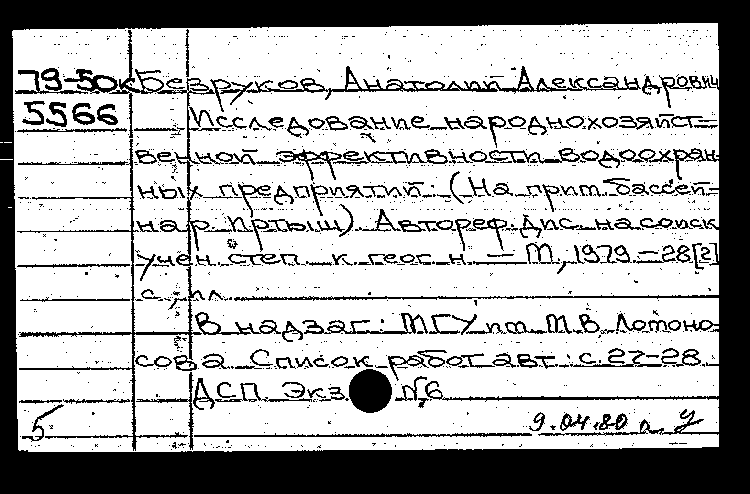 79-50к Безруков, Анатолий Александрович
5566 Исследование народнохозяйст-
венной эффективности водоохран-
ных предприятий: (На прим. бассей-
на р. Иртыш) Автореф. дис. на соиск.
учен. степ. к. геог. н. — М, 1979. — 28[2]
с., ил.
В надзаг.: МГУ им. М.В. Ломоно-
сова. Список работ авт.: с. 27-28.
ДСП. Экз. №6
5 9.04.80